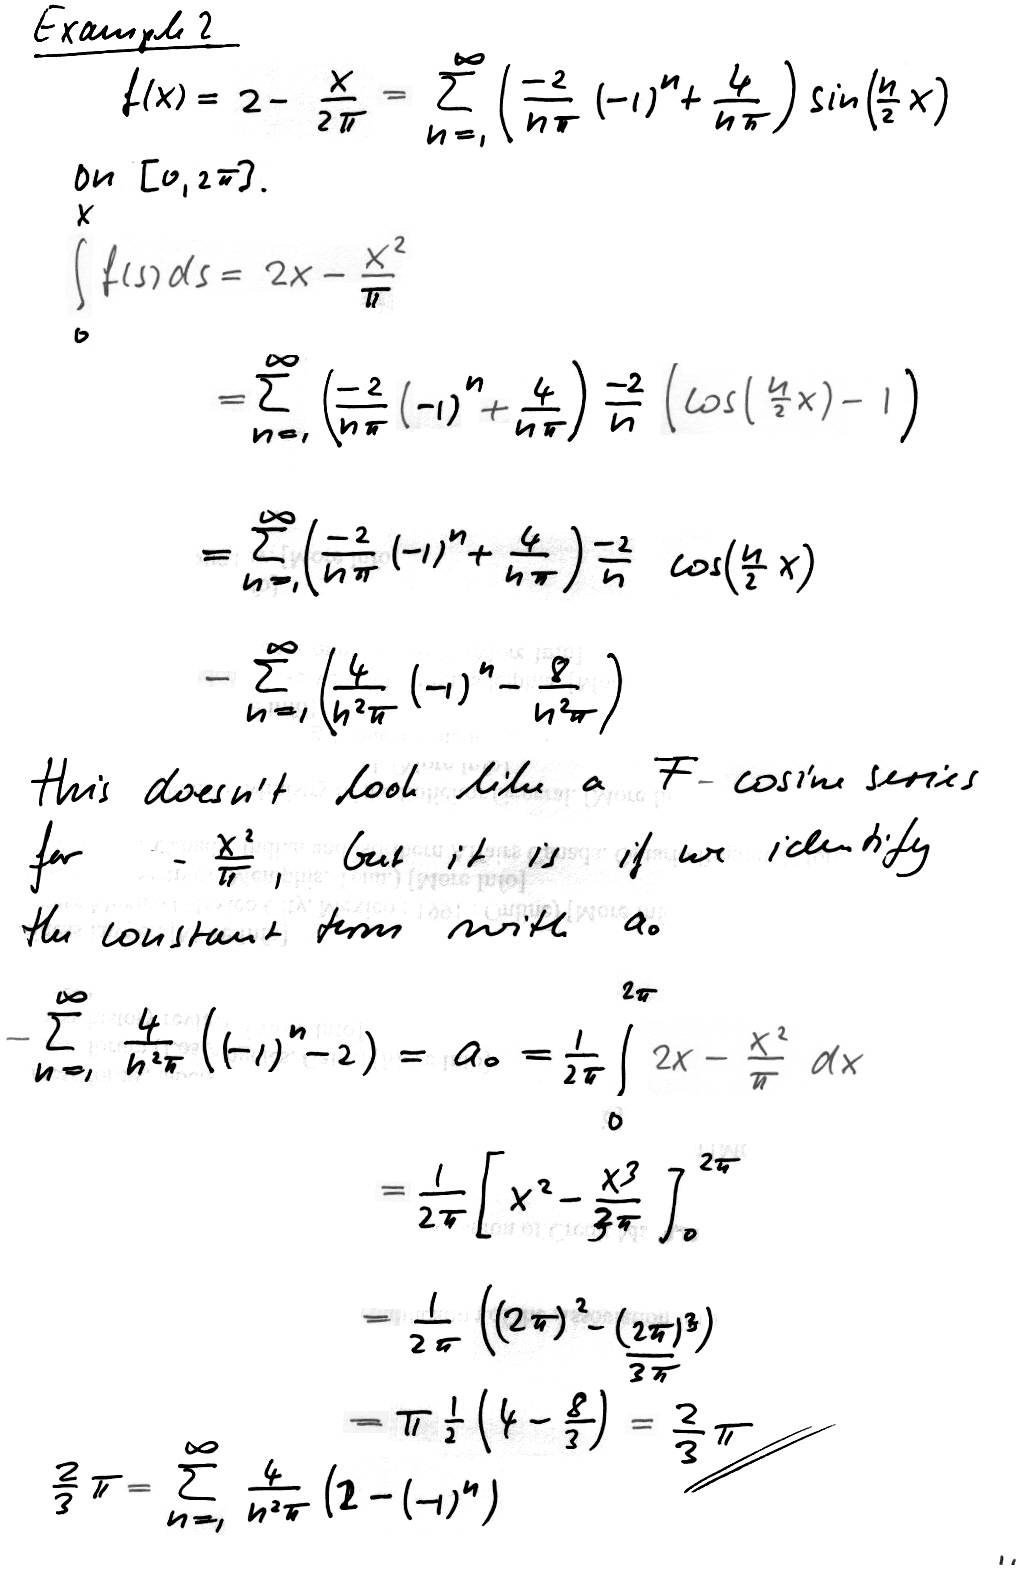 Example 2
f(x) = 2 - x/2π = ∑_{n=1}^{∞} (-2/nπ (-1)^n + 4/nπ) sin(n/2 x)
on [0, 2π].
∫_0^x f(s) ds = 2x - x²/π
= ∑_{n=1}^{∞} (-2/nπ (-1)^n + 4/nπ) -2/n (cos(n/2 x) - 1)
= ∑_{n=1}^{∞} (-2/nπ (-1)^n + 4/nπ) -2/n cos(n/2 x)
- ∑_{n=1}^{∞} (4/n²π (-1)^n - 8/n²π)
this doesn't look like a F- cosine series
for - x²/π, but it is if we identify
the constant term with a₀
- ∑_{n=1}^{∞} 4/n²π ((-1)^n - 2) = a₀ = 1/2π ∫_0^{2π} 2x - x²/π dx
= 1/2π [x² - x³/3π]_0^{2π}
= 1/2π ((2π)² - (2π)³/3π)
= π 1/2 (4 - 8/3) = 2/3 π
2/3 π = ∑_{n=1}^{∞} 4/n²π (2 - (-1)^n)